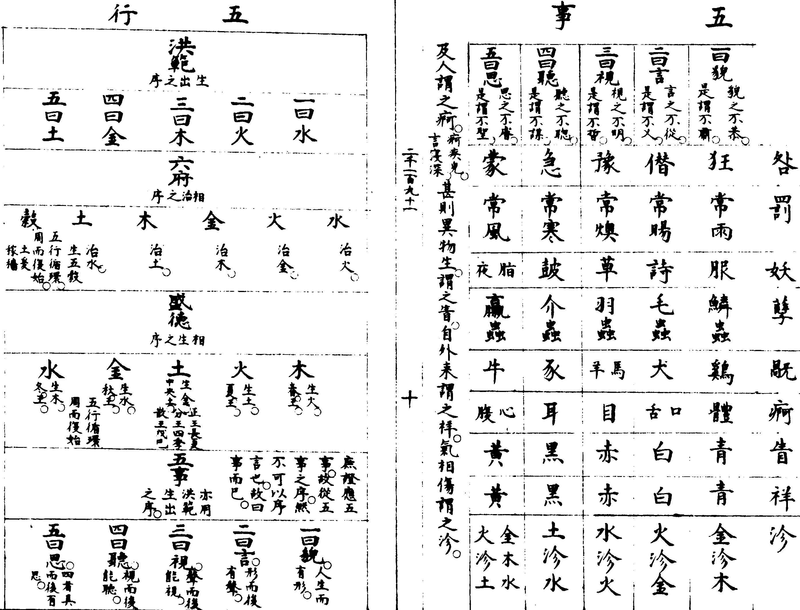 五事
咎 罰 妖 孽 𤯝 痾 眚 祥 沴
一曰貌 貌之不恭是謂不肅 狂 常雨 服 鱗蟲 鷄 體 青 青 金沴木
二曰言 言之不從是謂不乂 僭 常暘 詩 毛蟲 犬 口舌 白 白 火沴金
三曰視 視之不明是謂不哲 豫 常燠 草 羽蟲 馬羊 目 赤 赤 水沴火
四曰聽 聽之不聰是謂不謀 急 常寒 鼓 介蟲 豕 耳 黑 黑 土沴水
五曰思 思之不睿是謂不聖 蒙 常風 脂夜 蠃蟲 牛 心腹 黃 黃 金木水火沴土
及人謂之痾。痾疾皃。言寖深。甚則異物生謂之眚。自外来謂之祥。氣相傷謂之沴。
二千一百九十一
十
五行
洪範
生出之序
一曰水
二曰火
三曰木
四曰金
五曰土
六府
相治之序
水 治火。
火 治金。
金 治木。
木 治土。
土 治水。生五穀
穀 五行循環。周而復始。土爰稼穡
盛德
相生之序
木 生火。春王。
火 生土。夏王。
土 生金。中央土。正王長夏分王四季散王戊己
金 生水。秋王。
水 生木。冬王。五行循環周而復始
五事
亦用洪範生出之序。
庶證應五事。故從五事之序。然不可以序言也。故曰事而已。
一曰貌。人生而有形。
二曰言。形而後有聲。
三曰視。聲而後能視。
四曰聽。視而後能聽。
五曰思。四者具而後有思。